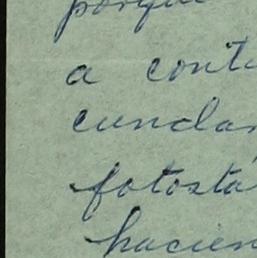 porque
a conti
cundar
fotostá
hacien